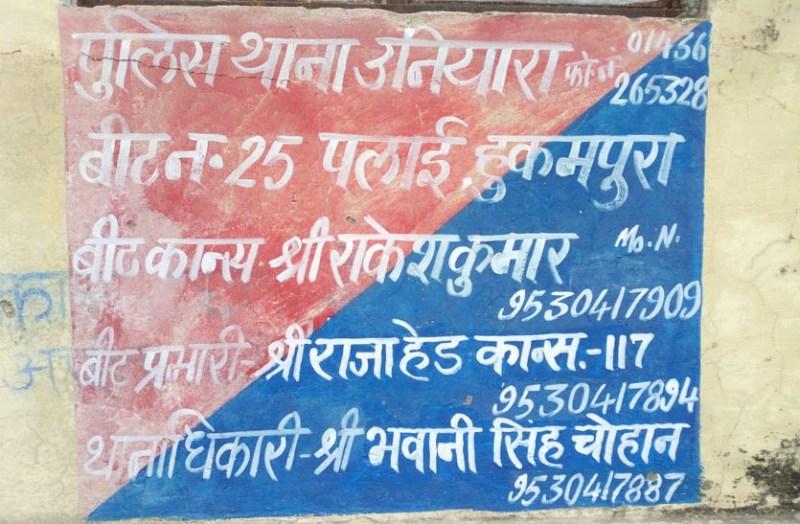 पुलिस थाना उनियारा फो.नं. 01436
265328
बीट न. 25 पलाई, हुकमपुरा
बीट कान्स. श्री राकेश कुमार Mo. N.
9530417909
बीट प्रभारी- श्री राजा हेड कान्स.-117
9530417894
थानाधिकारी-श्री भवानी सिंह चोहान
9530417887